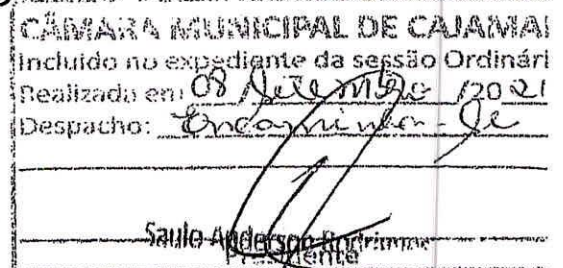 CÂMARA MUNICIPAL DE CAJAMAI
Incluído no expediente da sessão Ordinári
Realizada em: 08 Setembro /2021
Despacho: Encaminhar-se
Saulo Anderson Rodrigues
Presidente